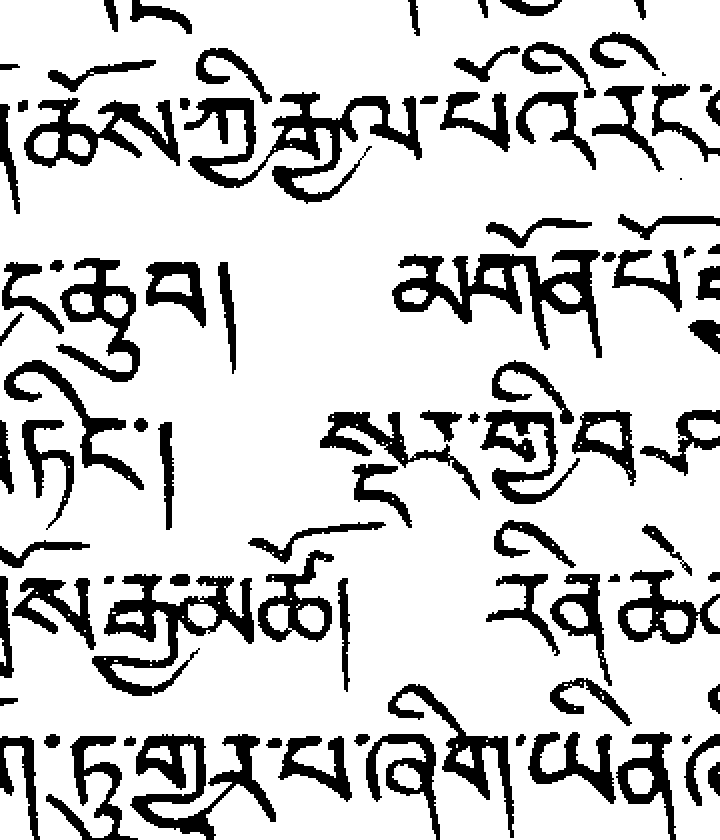 ཆོས་ཀྱི་རྒྱལ་པོའི་རིང་
ང་ཆུབ། མགོན་པོ་
ཏིང་། སྔར་གྱི་བ
སོ་རྒྱ་མཚོ། རིན་ཆེ
ཏུ་གྱུར་པ་ཞིག་ཡིན་